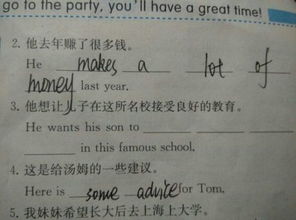 go to the party, you'll have a great time!
2. 他去年赚了很多钱。
He makes a lot of
money last year.
3. 他想让儿子在这所名校接受良好的教育。
He wants his son to ______ ______ ______
______ in this famous school.
4. 这是给汤姆的一些建议。
Here is some advice for Tom.
5. 我妹妹希望长大后去上海上大学。